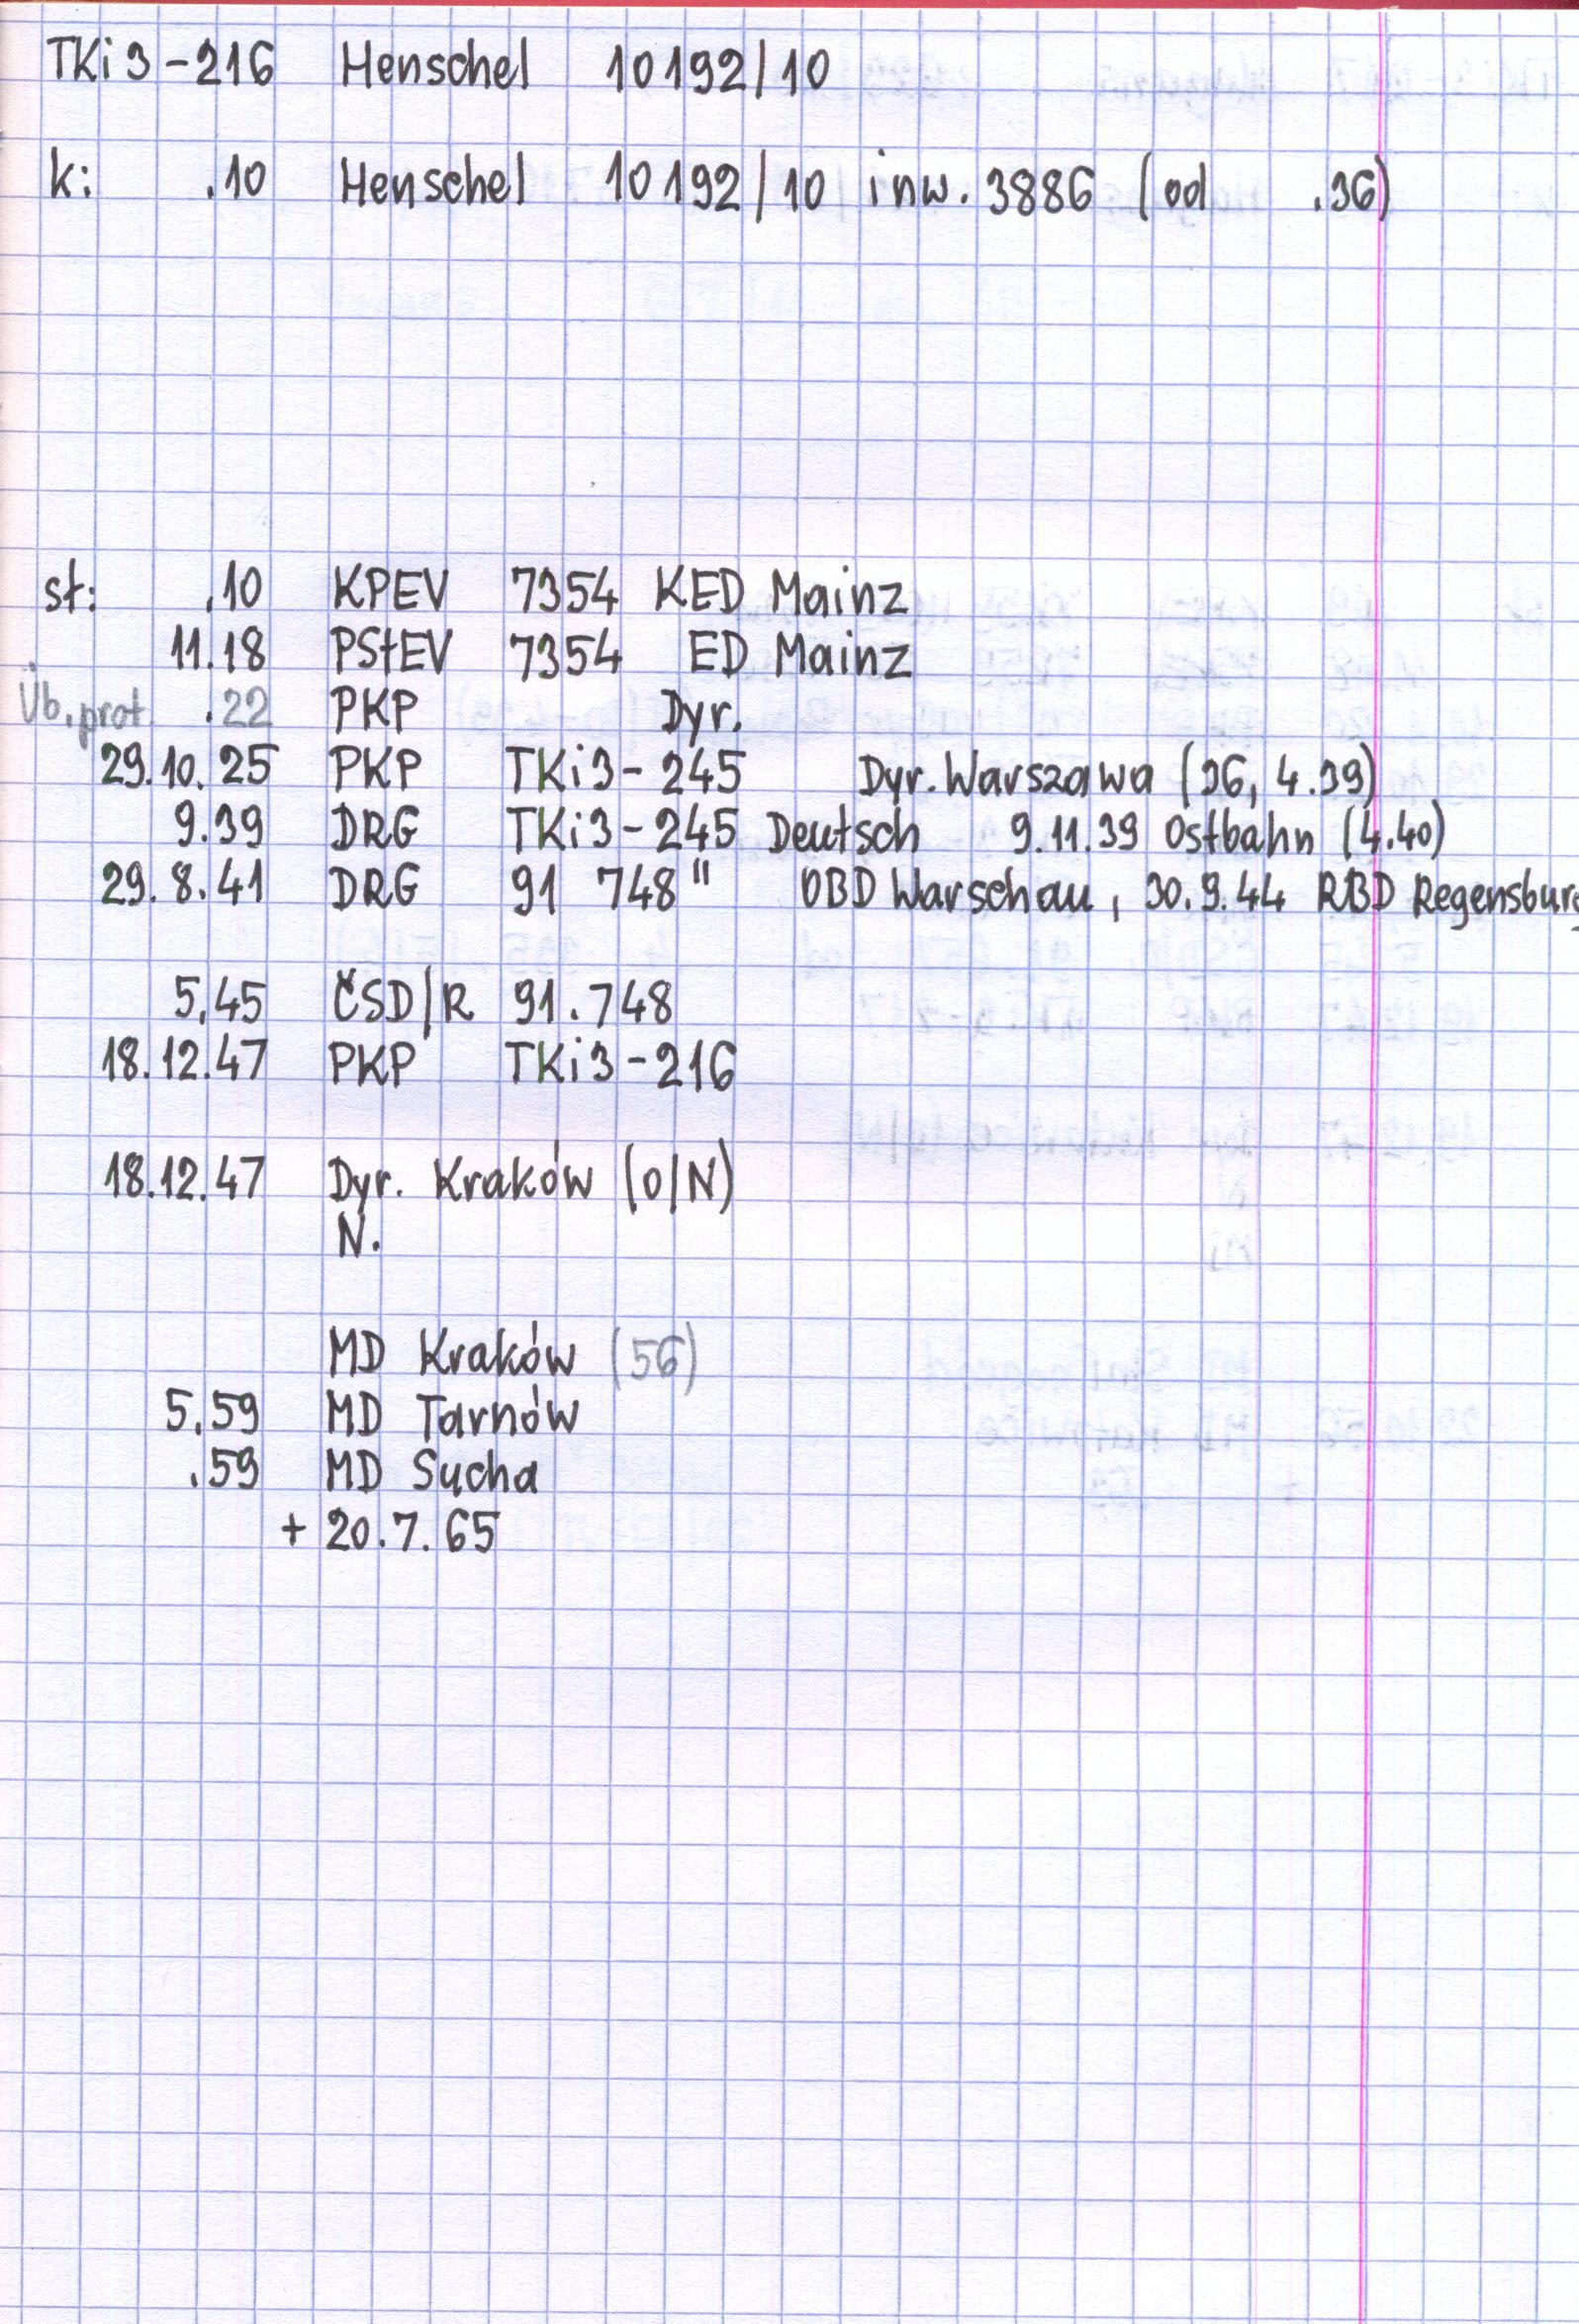 TKi3-216 Henschel 10192/10
k: .10 Henschel 10192/10 inw. 3886 (od .36)
st: .10 KPEV 7354 KED Mainz
11.18 PStEV 7354 ED Mainz
Üb.prot. .22 PKP Dyr.
29.10.25 PKP TKi3-245 Dyr. Warszawa (36, 4.39)
9.39 DRG TKi3-245 Deutsch 9.11.39 Ostbahn (4.40)
29.8.41 DRG 91 748" OBD Warschau, 30.9.44 RBD Regensburg
5.45 ČSD/R 91.748
18.12.47 PKP TKi3-216
18.12.47 Dyr. Kraków (0/N)
N.
MD Kraków (56)
5.59 MD Tarnów
.59 MD Sucha
+ 20.7.65